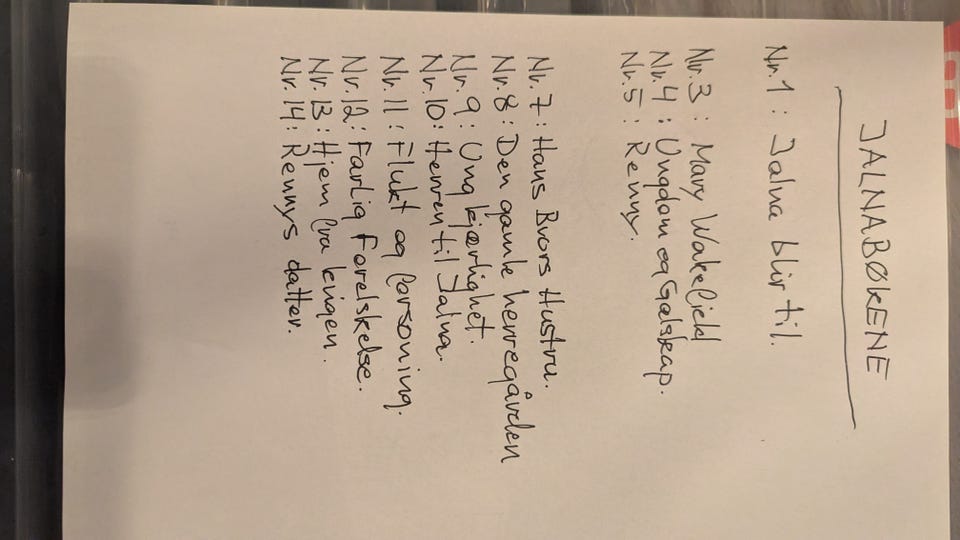 JALNABØKENE
Nr. 1 : Jalna blir til.
Nr. 3 : Mary Wakefield
Nr. 4 : Ungdom og Galskap.
Nr. 5 : Renny.
Nr. 7 : Hans Brors Hustru.
Nr. 8 : Den gamle herregården
Nr. 9 : Ung kjærlighet.
Nr. 10 : Herren til Jalna.
Nr. 11 : Flukt og forsoning.
Nr. 12 : Farlig Forelskelse.
Nr. 13 : Hjem fra krigen.
Nr. 14 : Rennys datter.